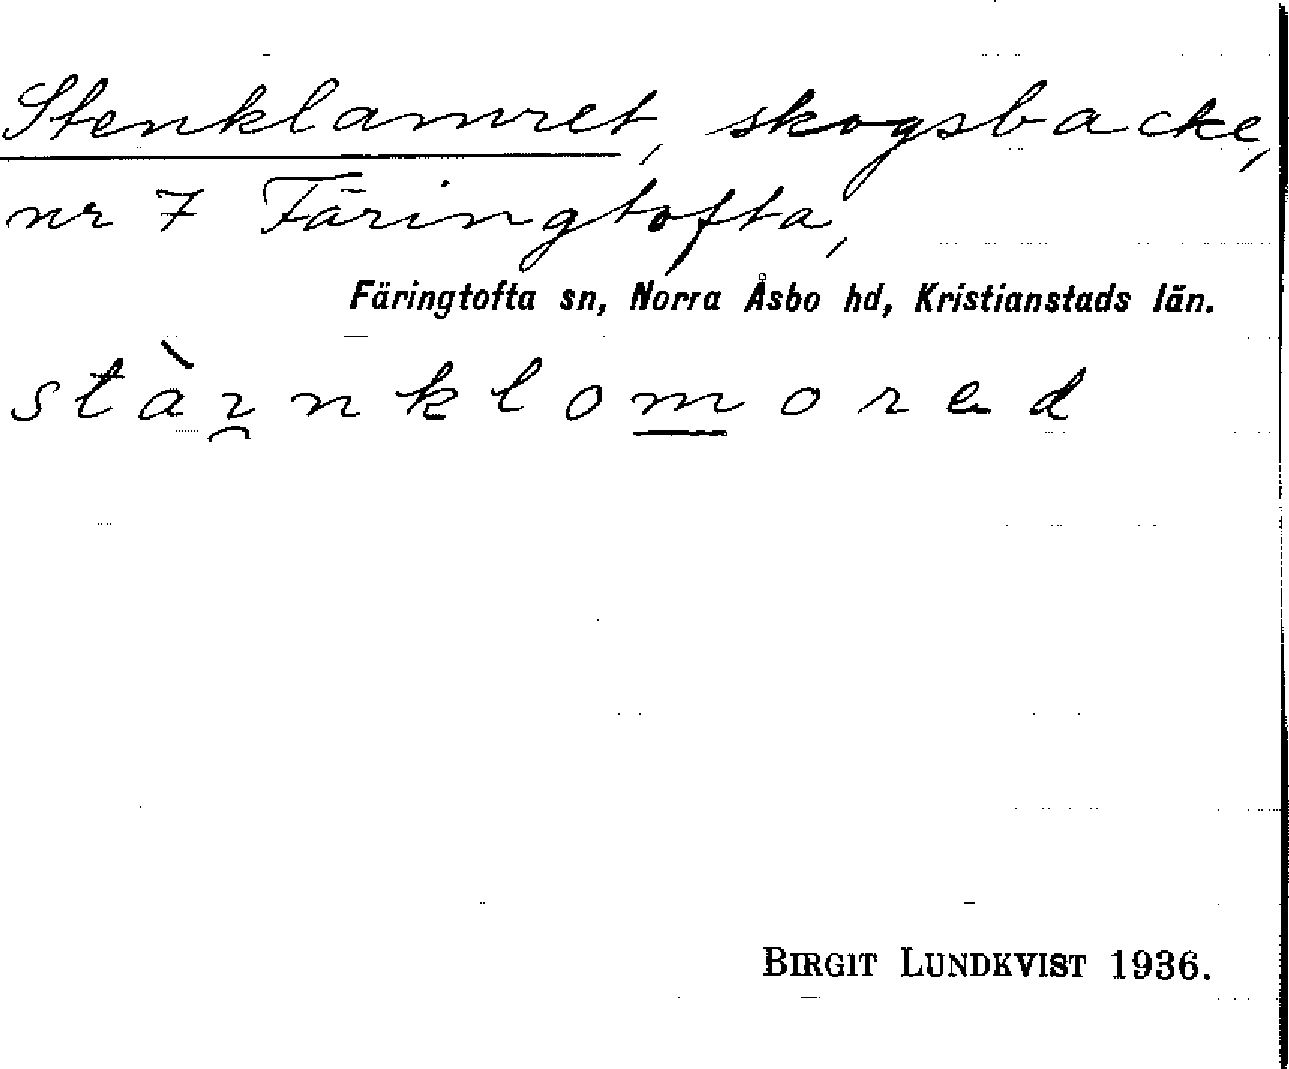 Stenklamret, skogsbacke,
nr 7 Färingtofta,
Färingtofta sn, Norra Åsbo hd, Kristianstads län.
BIRGIT LUNDKVIST 1936.